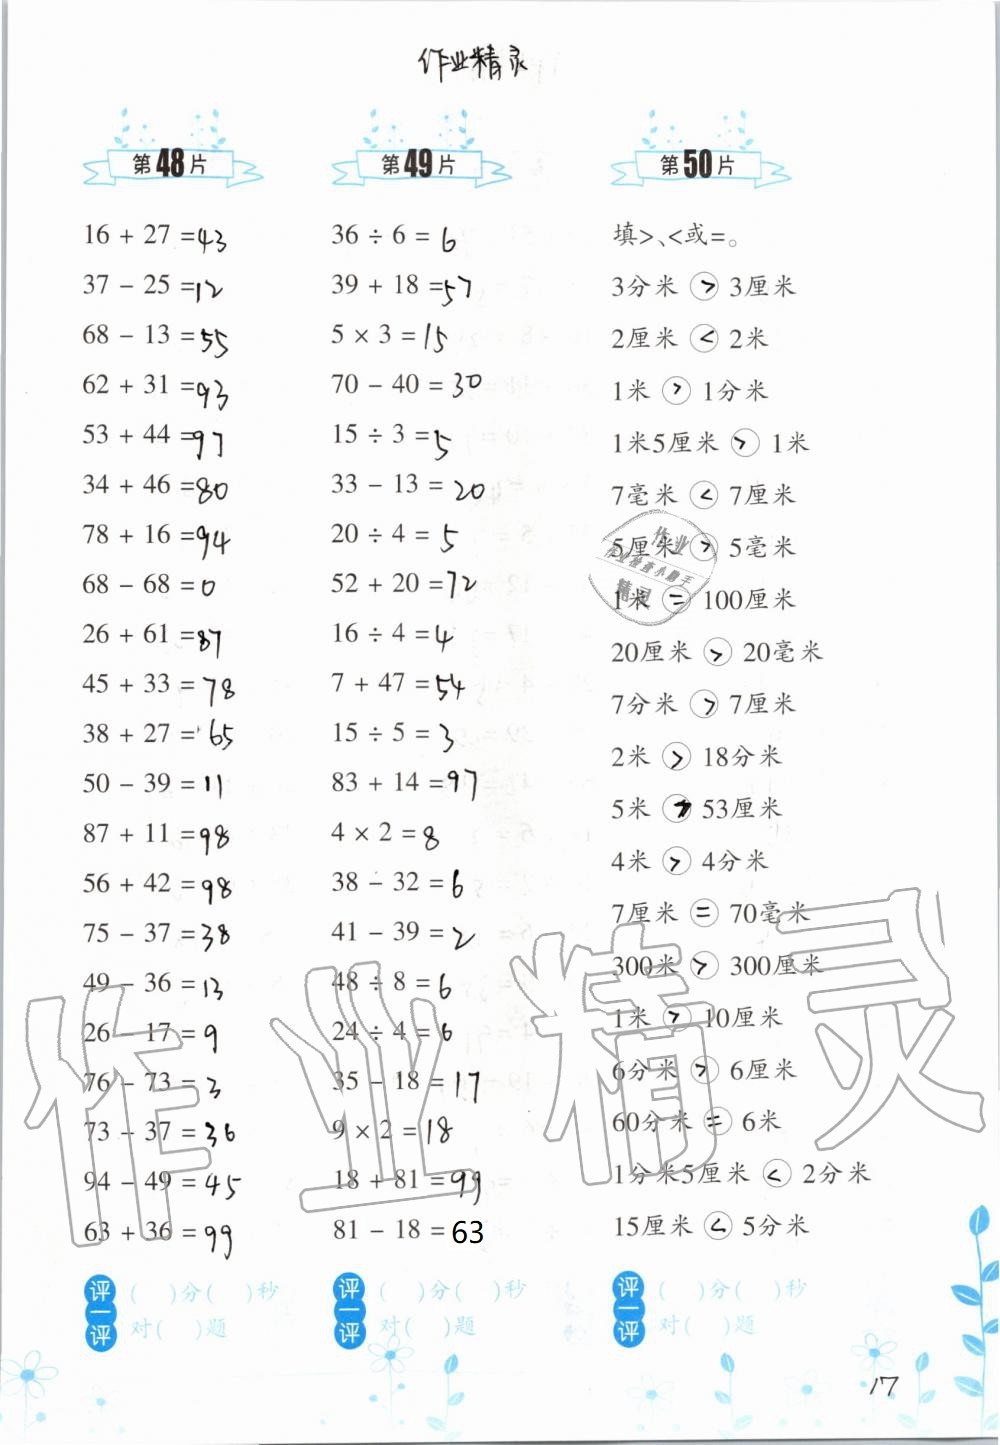 作业精灵
第48片
16 + 27 =43
37 - 25 =12
68 - 13 =55
62 + 31 =93
53 + 44 =97
34 + 46 =80
78 + 16 =94
68 - 68 =0
26 + 61 =87
45 + 33 =78
38 + 27 =65
50 - 39 =11
87 + 11 =98
56 + 42 =98
75 - 37 =38
49 - 36 =13
26 - 17 =9
76 - 73 =3
73 - 37 =36
94 - 49 =45
63 + 36 =99
评一评
( )分( )秒
对( )题
第49片
36 ÷ 6 =6
39 + 18 =57
5 × 3 =15
70 - 40 =30
15 ÷ 3 =5
33 - 13 =20
20 ÷ 4 =5
52 + 20 =72
16 ÷ 4 =4
7 + 47 =54
15 ÷ 5 =3
83 + 14 =97
4 × 2 =8
38 - 32 =6
41 - 39 =2
48 ÷ 8 =6
24 ÷ 4 =6
35 - 18 =17
9 × 2 =18
18 + 81 =99
81 - 18 =63
评一评
( )分( )秒
对( )题
第50片
填>、<或=。
3分米 > 3厘米
2厘米 < 2米
1米 > 1分米
1米5厘米 > 1米
7毫米 < 7厘米
5厘米 > 5毫米
1米 = 100厘米
20厘米 > 20毫米
7分米 > 7厘米
2米 > 18分米
5米 > 53厘米
4米 > 4分米
7厘米 = 70毫米
300米 > 300厘米
1米 > 10厘米
6分米 > 6厘米
60分米 = 6米
1分米5厘米 < 2分米
15厘米 < 5分米
评一评
( )分( )秒
对( )题
作业
作业检查小助手
精灵
作业精灵
17